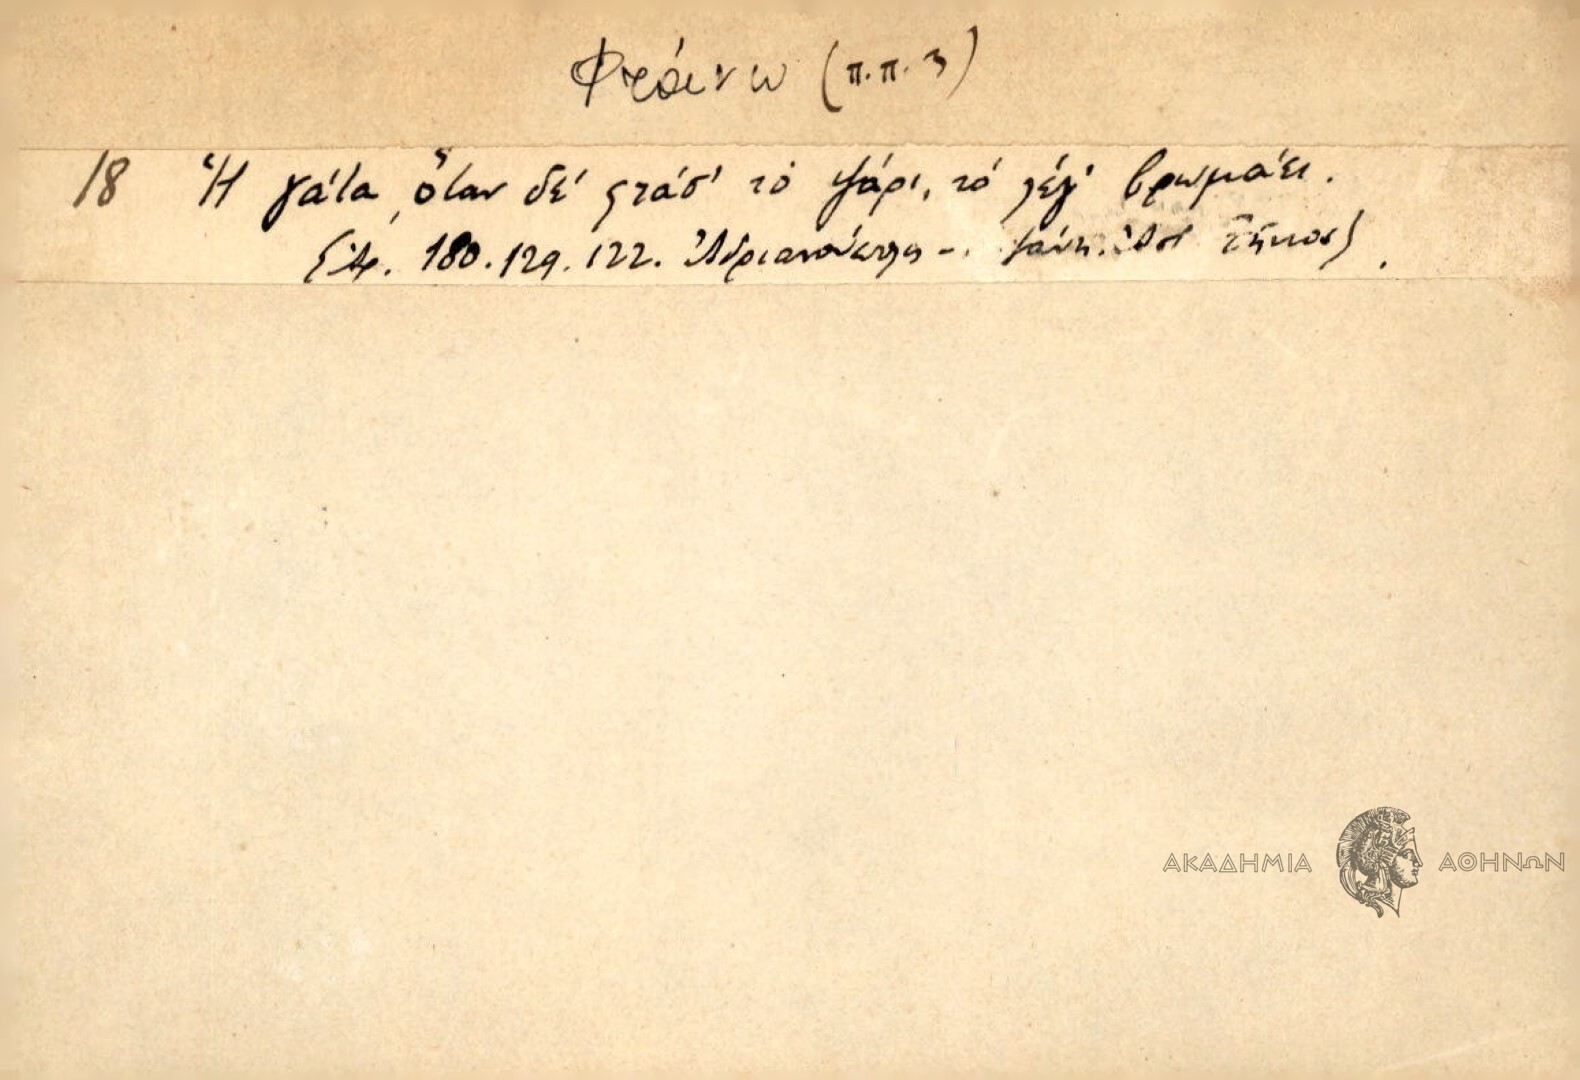 Φτάνω (π.π. 3)
18 Ἡ γάτα, ὅταν δέ φτάσ' τό ψάρι, τό λέγ' βρωμάει.
180. 129. 122. Ἀδριανούπολις – Τήνιος)
ΑΚΑΔΗΜΙΑ ΑΘΗΝΩΝ